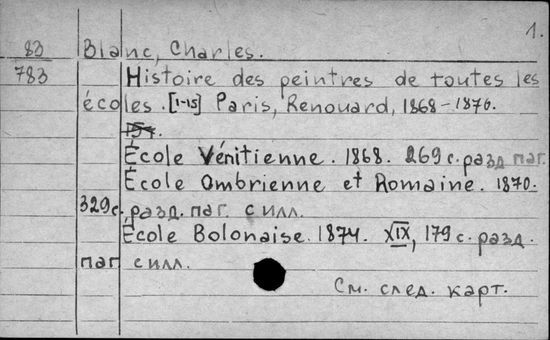 1.
83 Blanc, Charles.
783 Histoire des peintres de toutes les
écoles. [1-15] Paris, Renouard, 1868-1876.
École Vénitienne. 1868. 269 с. разд паг.
École Ombrienne et Romaine. 1870.
329 с. разд. паг. с илл.
École Bolonaise. 1874. XIX, 179 с. разд.
паг с илл.
См. след. карт.